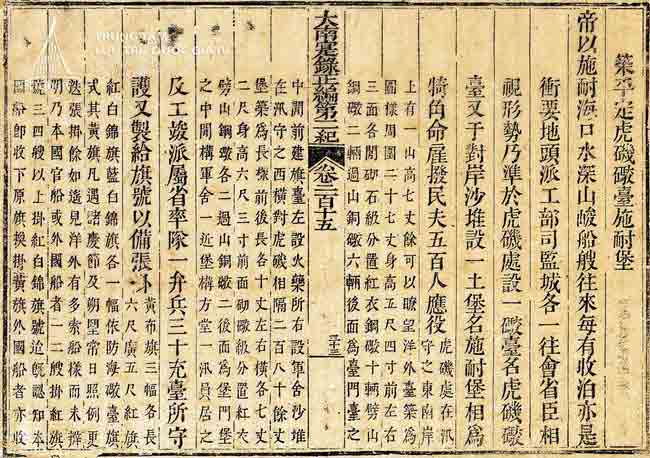 築平定虎磯礮臺施耐堡
帝以施耐海口水深山船艘往來每有收泊亦是
衝要地頭派工部司監城各一往會省臣相
視形勢乃準於虎磯處設一礮臺名虎磯礮
臺又于對岸沙堆設一土堡名施耐堡相為
犄角命雇撥民夫五百人應役
虎磯處在汛
守之東南岸
上有一山高七丈餘可以瞭望洋外臺築為
圓樣周圍二十七丈餘身高五尺四寸前左右
三面各開砌石級分置紅衣銅礮十輌劈山
銅礮二輌過山銅礮六輌後面為臺門臺之
大南寔錄正編第二紀 卷二百十五
二十三
中間前建旗臺左設火藥所右設軍舍沙堆
在汛守之西橫對虎磯相隔二百八十餘丈
堡築為長樣前後長各十丈左右橫各七丈
二尺身高六尺三寸前面砌礮級分置紅衣
劈山銅礮各二過山銅礮二後面為堡門堡
之中間構軍舍一近堡構方堂一汛員居之
反工竣派屬省率隊一弁兵三十充臺所守
護又製給旗號以備張斗
黃布旗三幅各長
六尺廣五尺紅旗
紅白錦旗藍白錦旗各一幅依防海礮臺旗
式其黃旗凡遇諸慶節及朔望常日照例更
迭張掛餘如遙見洋外有多索船樣而未辨
明乃本國官船或外國船者一二艘掛紅旗
號三四艘以上掛紅白錦旗號迨既認知本
國船卽收下原旗換掛黃旗外國船者亦收
TRUNG TÂM
LƯU TRỮ QUỐC GIA IV